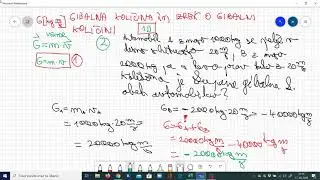 G[kg m/s] GIBALNA KOLIČINA IN IZREK O GIBALNI
KOLIČINI 1D
G = m·v
G = m·v 1
2 Avtomobil A z maso 1000 kg se pelje v
desno s hitrostjo 20 m/s, B z maso
2000 kg pa v levo prav tako z 20 m/s
Kolikšna je skupna gibalna
obeh avtomobilov?
G_A = m_A · v_A
= 1000 kg · 20 m/s
= 20000 kg m/s
G_B = -2000 kg · 20 m/s = -40000 kg m/s
G = G_A + G_B
= 20000 kg m/s - 40000 kg m/s
= -20000 kg m/s